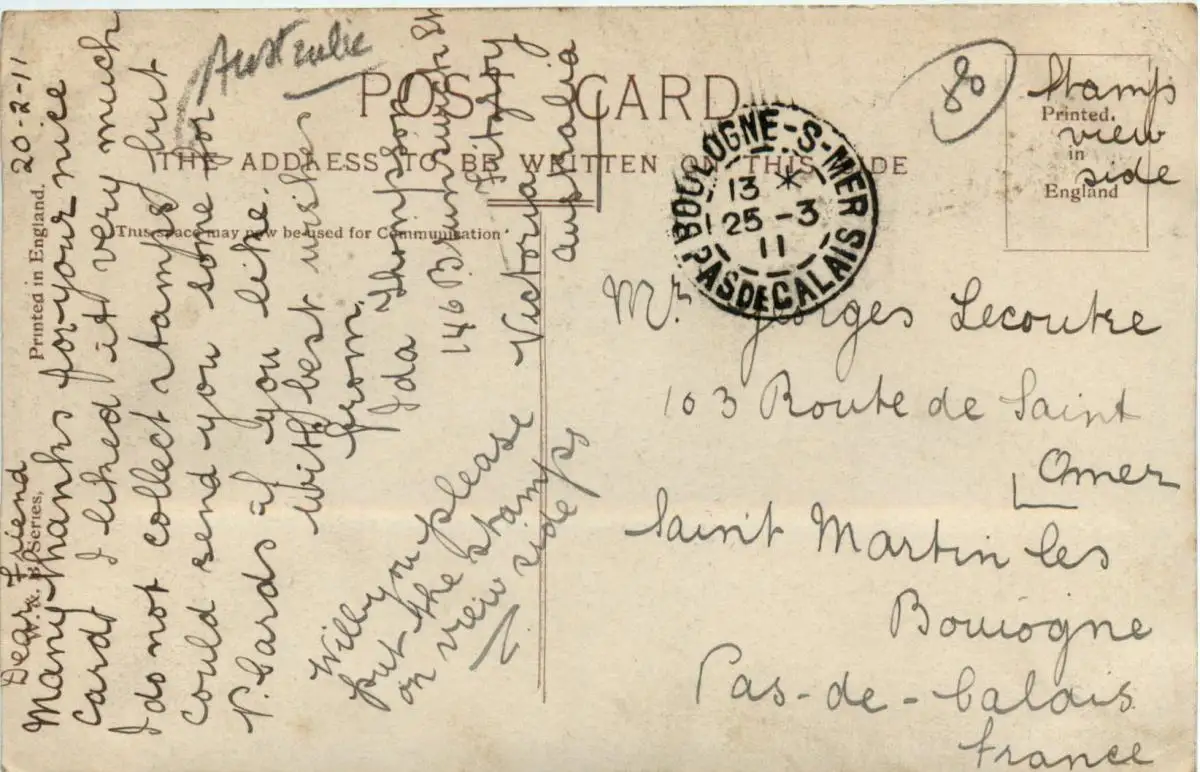 Australie
POST CARD
THE ADDRESS TO BE WRITTEN ON THIS SIDE
This space may now be used for Communication
Printed in England.
W. & B. Series.
20-2-11
Dear Friend
Many thanks for your nice
Card I liked it very much
I do not collect stamps but
could send you some for
P. Cards if you like.
with best wishes
from
Ida Thompson
146 Brunswick St
Fitzroy
Victoria
Australia
Will you please
put the stamps
on view side
80
Stamp
view
side
Printed
in
England
BOULOGNE-S-MER
13 *
25-3
11
PAS DE CALAIS
Mr. Georges Lecoutre
103 Route de Saint
Omer
Saint Martin les
Boulogne
Pas-de-Calais
France